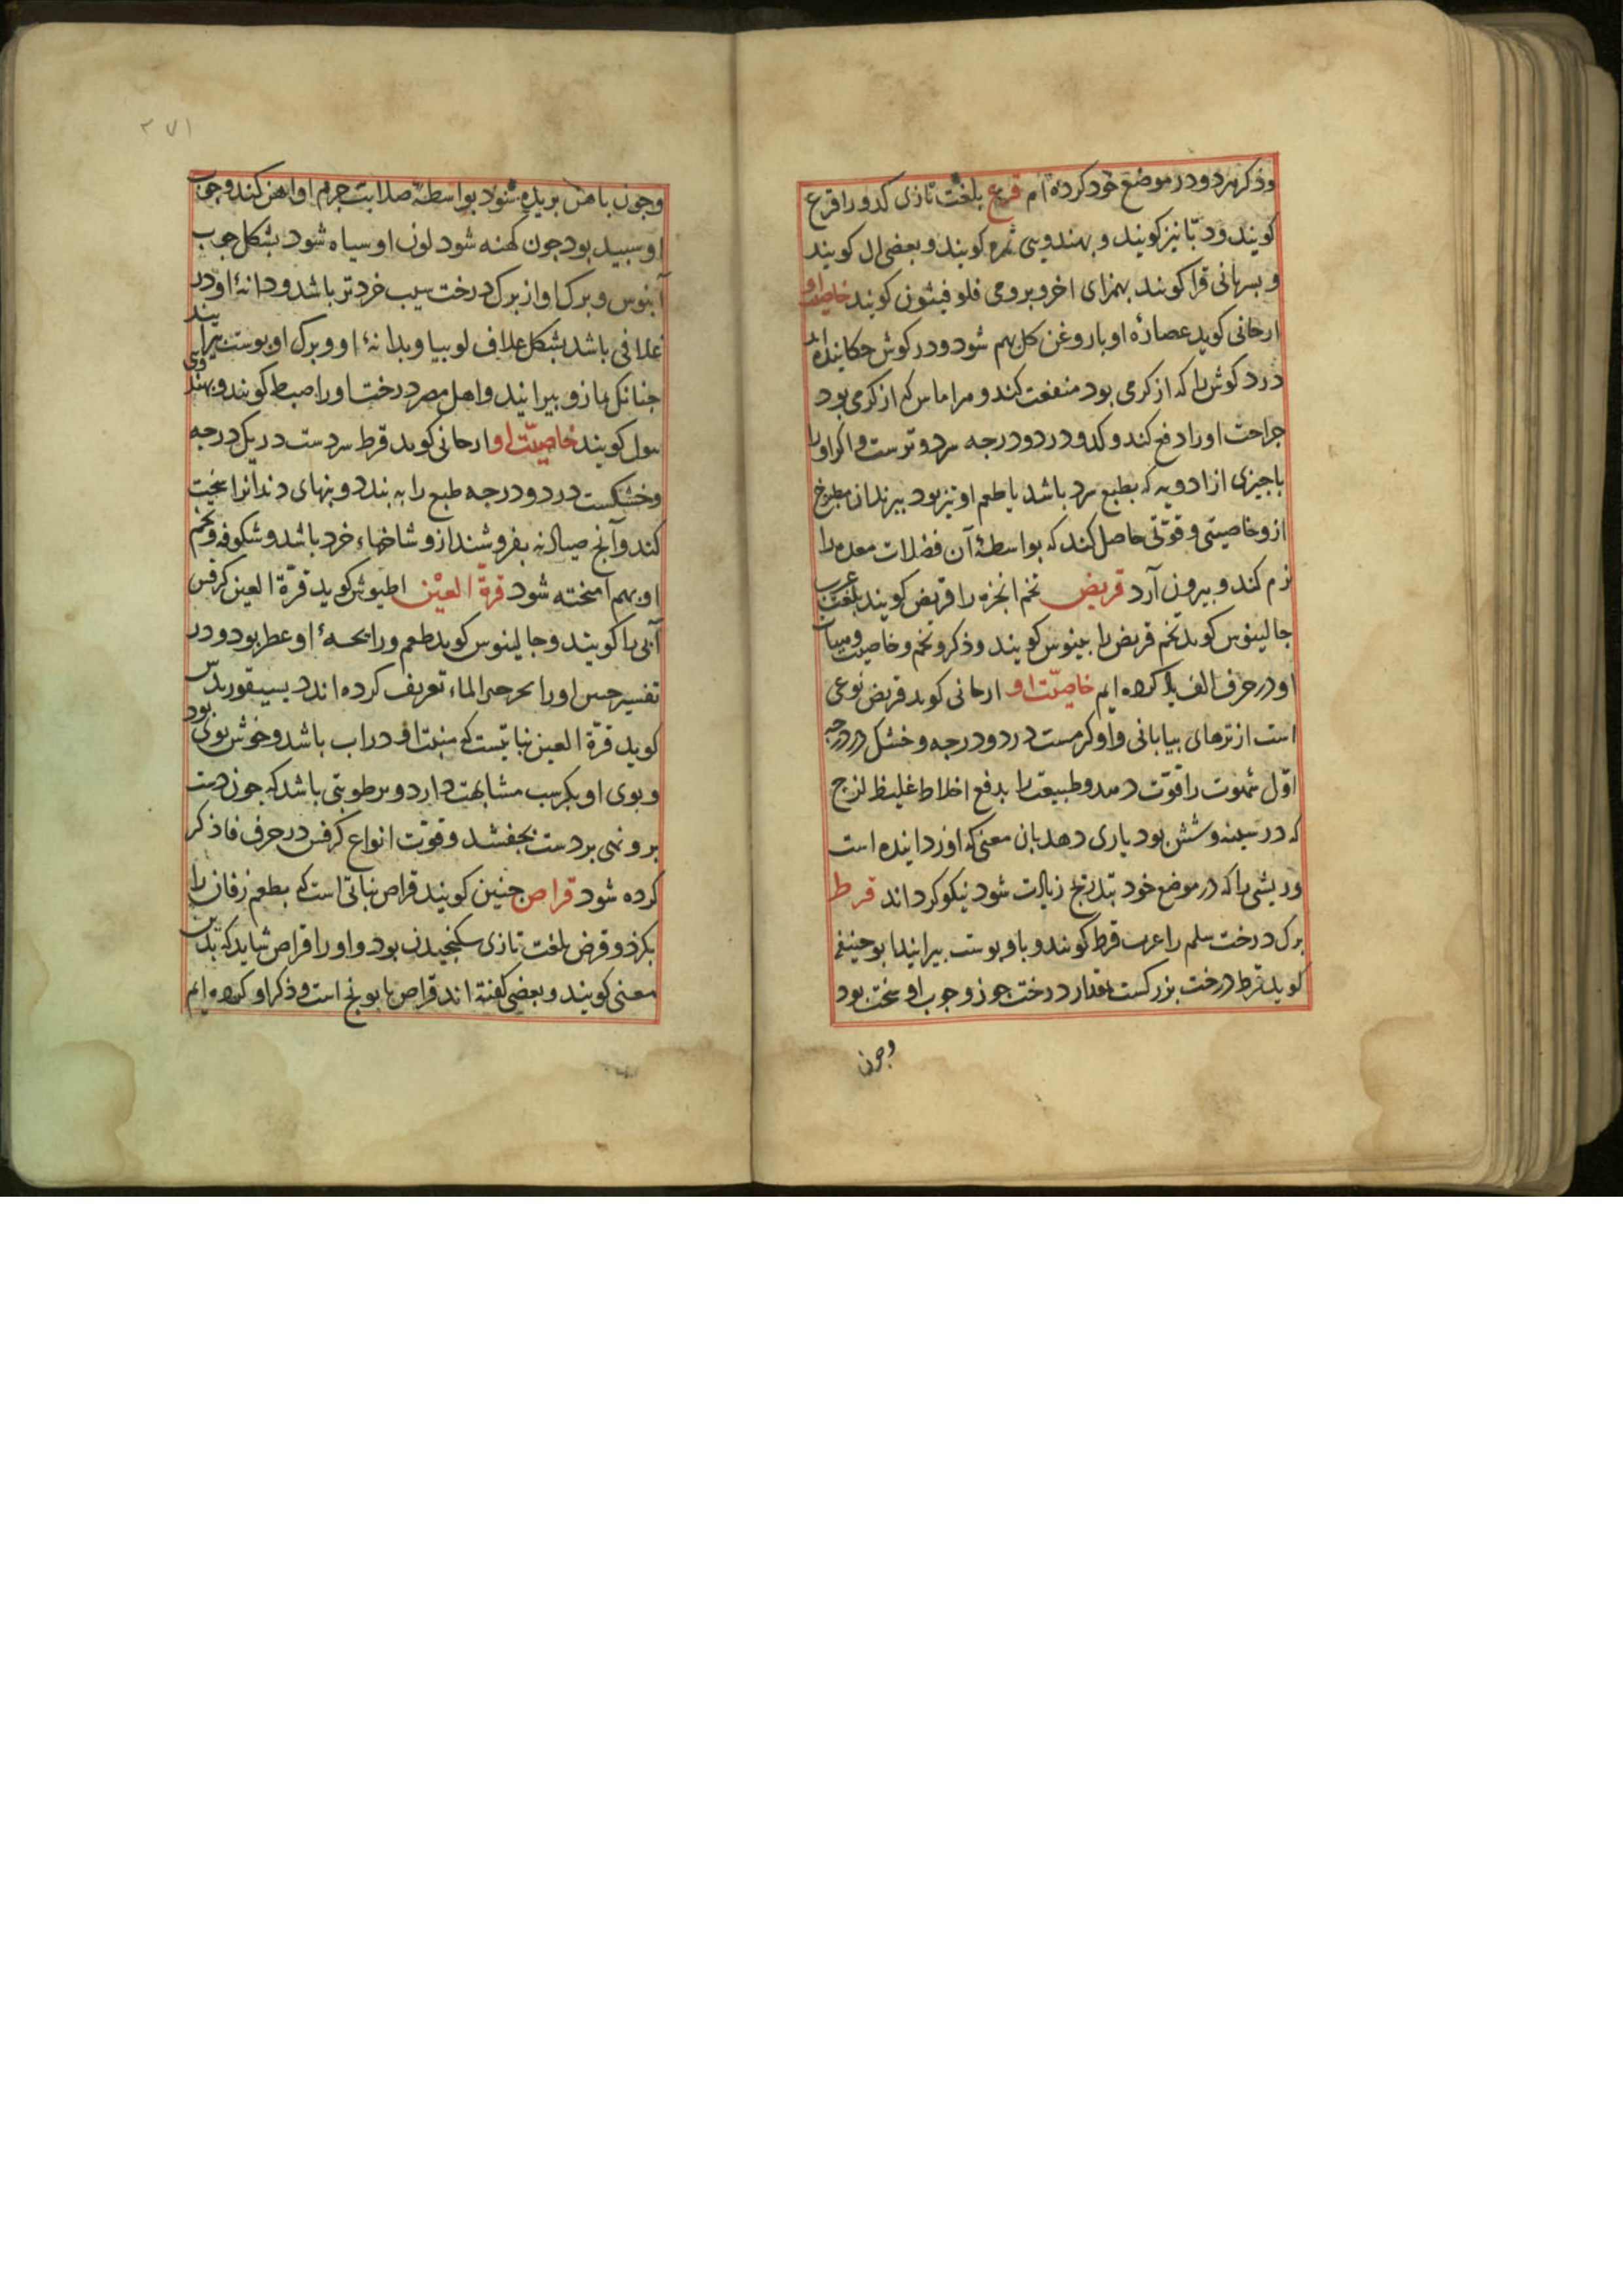 وذکر هردو در موضع خود کرده ام قرع بلغت تازی کدو را قرع
کویند ودبّا نیز کویند و بهندویی نمره کویند و بعضی ال کویند
و بسریانی قرا کویند بهزای اخر و برومی فلوفیثون کویند خاصیت او
ارجانی کوید عصارهٔ او با روغن کل بهم شود و در کوش چکانیده
درد کوش را که از کرمی بود منفعت کند و مر اماس که از کرمی بود
جراحت او را دفع کند و کدو در دو درجه سرد و ترست و اکر او را
با چیزی از ادویه که بطبع سرد باشد یا طعم او تیز بود بپزند از مطبوخ
ازو خاصیتی و قوّتی حاصل کند که بواسطهٔ آن فضلات معده را
نرم کند و بیرون آرد قریض تخم انجره را قریض کویند بلغت عرب
جالینوس کوید تخم قریض را بینوس کویند وذکر و تخم و خاصیت
او در حرف الف یاد کرده ایم خاصیّت او ارجانی کوید قریض نوعی
است از ترهای بیابانی و او کرمست در دو درجه و خشک در درجه
اوّل شهوت را قوّت دهد و طبیعت را بدفع اخلاط غلیظ لزج
که در سینه و شش بود یاری دهد بان معنی که او زداینده است
وریشی را که در موضع خود بتدریج زیادت شود نیکو کرداند قرط
برک درخت سلم را عرب قرط کویند و باو پوست بپرایند ابو حنیفه
کوید قرط درخت بزرکست بمقدار درخت جوز و چوب او سخت بود
وچون
۲۷۱
وچون باهن بریده شود بواسطهٔ صلابت جرم او اهن کند و چوب
او سپید بود چون کهنه شود لون او سیاه شود بشکل چوب
آبنوس و برک او از برک درخت سیب خردتر باشد و دانهٔ او در
غلافی باشد بشکل غلاف لوبیا و بدانهٔ او و برک او پوست پیرایند
چنانک بمازو پیرایند و اهل مصر درخت او را صبط کویند و بهندوی
سول کویند خاصیّت او ارجانی کوید قرط سردست در یک درجه
وخشکست در دو درجه طبع را به بندد و بنهای دندانرا سخت
کند و آنچ صیادنه بفروشند ازو شاخهاء خرد باشد و شکوفه و تخم
او بهم آمیخته شود قرة العیْن اطیوش کوید قرّة العین کرفس
آبی را کویند و جالینوس کوید طعم و رایحهٔ او عطر بود و در
تفسیر حسن او را بحرجیر الماء تعریف کرده اند دیسیقوریدس
کوید قرّة العین نباتیست که منبت او در اب باشد و خوش بوی بود
و بوی او بکرسب مشابهت دارد و برطوبتی باشد که چون دست
برو نهی بر دست بچفسد و قوّت انواع کرفس در حرف فا ذکر
کرده شود قراص چنین کویند قراص نباتی است که بطعم زفان را
بکزد و قرض بلغت تازی سکنجیدن بود و او را قراص شاید که بدین
معنی کویند و بعضی کفته اند قراص بابونج است و ذکر او کرده ایم